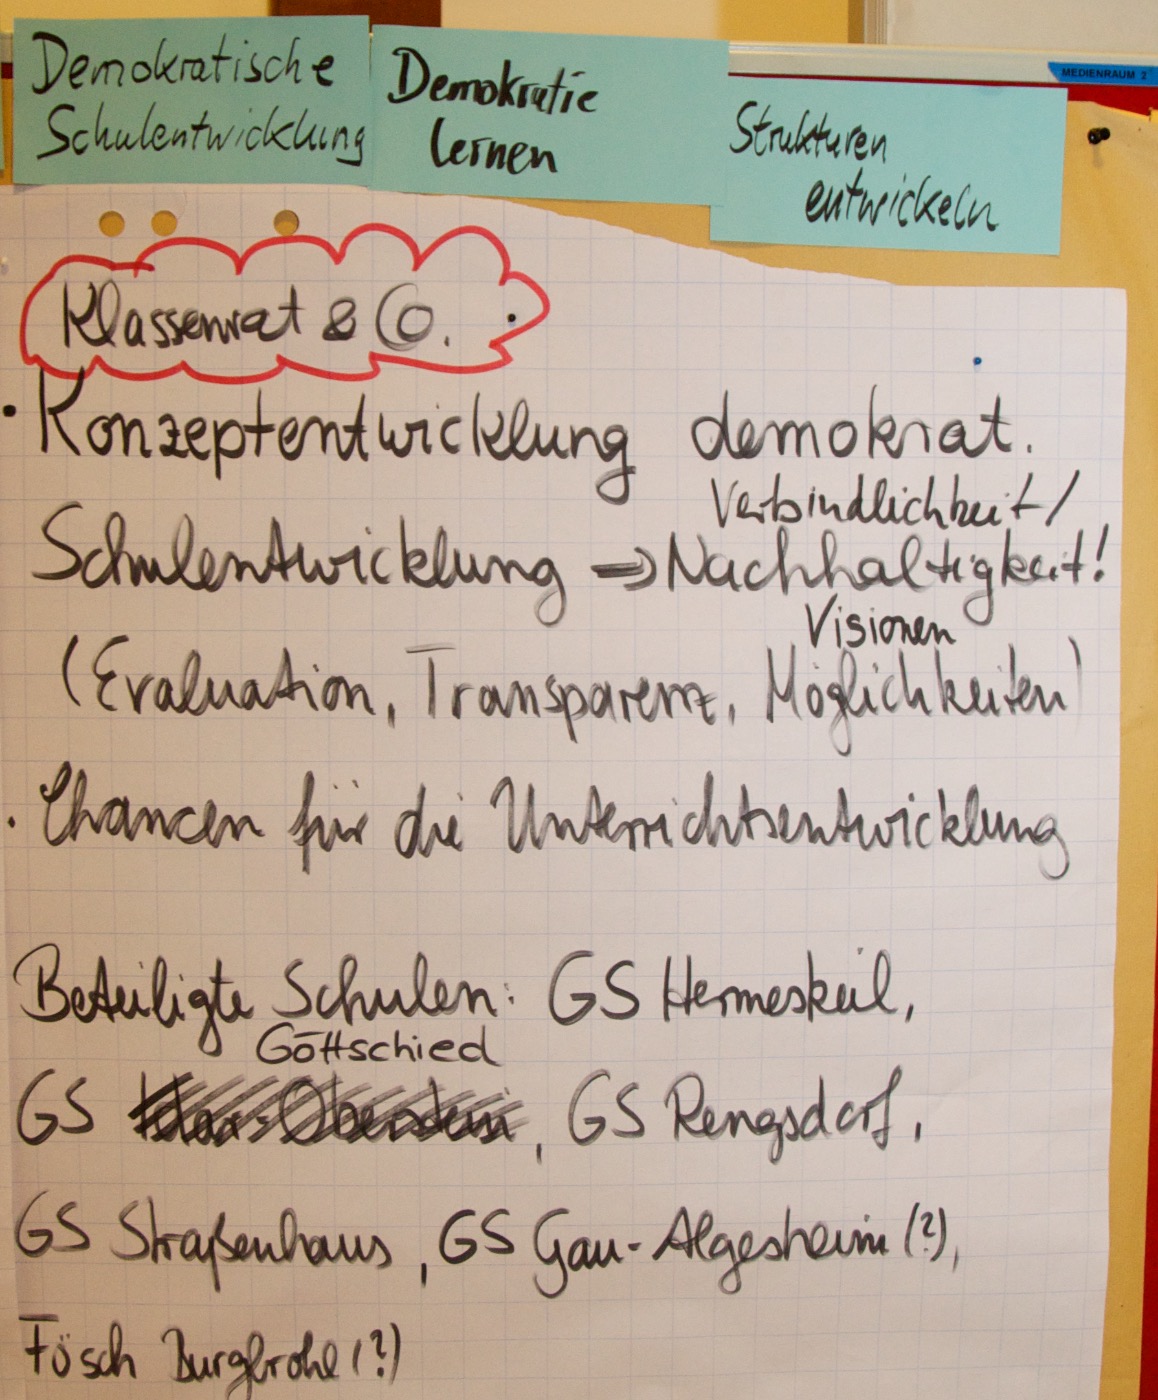 Demokratische
Schulentwicklung
Demokratie
lernen
Strukturen
entwickeln
MEDIENRAUM 2
Klassenrat & Co.
· Konzeptentwicklung demokrat.
Verbindlichkeit/
Schulentwicklung ⇒ Nachhaltigkeit!
Visionen
(Evaluation, Transparenz, Möglichkeiten)
· Chancen für die Unterrichtsentwicklung
Beteiligte Schulen: GS Hermeskeil,
Göttschied
GS Idar-Oberstein, GS Rengsdorf,
GS Straßenhaus, GS Gau-Algesheim (?),
Fösch Burgbrohl (?)